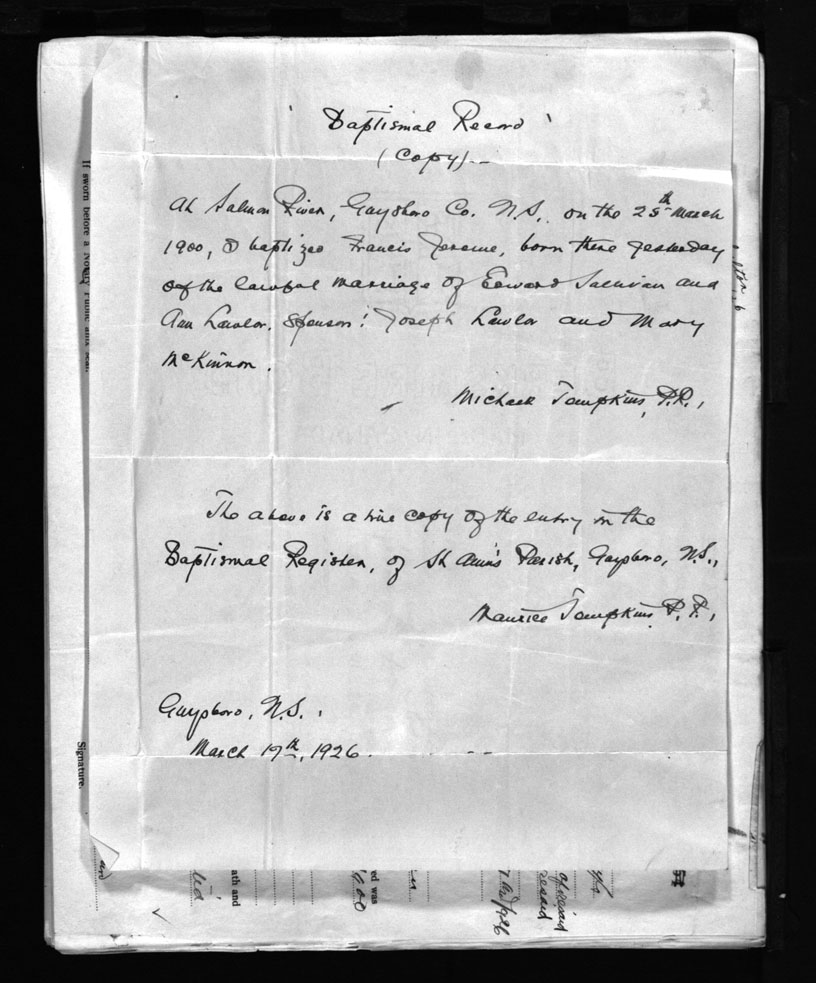 ' Baptismal Record '
(Copy)--
At Salmon River, Guysboro Co. N.S., on the 25th March
1900, I baptized Francis Jerome, born there yesterday
of the lawful marriage of Edward Sullivan and
Ann Lawlor. Sponsors: Joseph Lawlor and Mary
McKinnon.
Michael Tompkins, P.P.,
The above is a true copy of the entry in the
Baptismal Register, of St Ann's Parish, Guysboro, N.S.,
Maurice Tompkins, P.P.,
Guysboro, N.S.,
March 17th, 1926.
If sworn before a Notary Public affix seal.
Signature.
ath and
ed was
of record